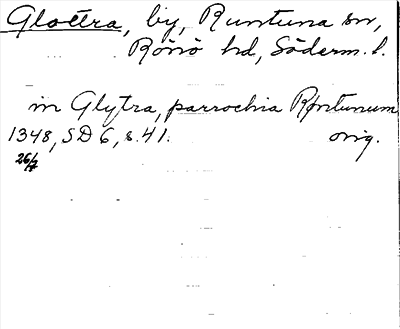 Glottra, by, Runtuna sn,
Rönö hd, Söderm. l.
in Glytra, parrochia RØntunum
1348, SD 6, s. 41. orig.
26/7